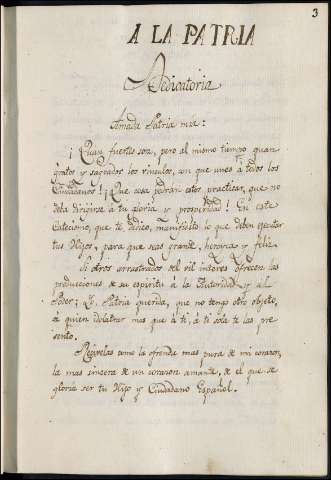 3
A LA PATRIA
Dedicatoria
Amada Patria mia:
¡ Quan fuertes son, pero al mismo tiempo quan
gratos y sagrados los vinculos, con que unes á todos los
Ciudadanos! ¡Que cosa podran estos practicar, que no
deba dirigirse á tu gloria y prosperidad! En este
Catecismo, que te dedico, manifiesto lo que deben ejecutar
tus Hijos, para que seas grande, heroica y feliz.
Si otros arrastrados del vil interes ofrecen las
producciones de su espiritu á la Autoridad y al
Poder; Yo, Patria querida, que no tengo otro objeto,
á quien idolatrar mas que á ti, á ti sola te las pre-
sento.
Recivelas como la ofrenda mas pura de mi corazon,
la mas sincera de un corazon amante, de el que se
gloría ser tu Hijo y Ciudadano Español.